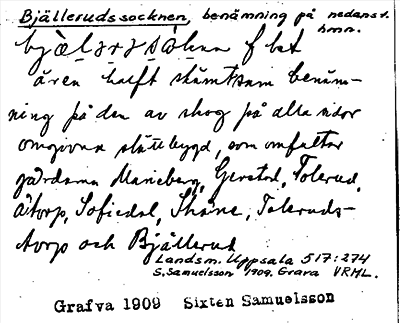 Bjällerudssocknen, benämning på nedanst.
hmn.
bjæ̀lərəsòknn f best
även halft skämtsam benäm-
ning på den av skog på alla sidor
omgivna slättbygd, som omfattar
gårdarna Marieberg, Gerstad, Tolerud,
Åstorp, Sofiedal, Skåne, Toleruds-
torp och Bjällerud
Landsm. Uppsala 517:274
S. Samuelsson 1909. Grava VRML.
Grafva 1909 Sixten Samuelsson